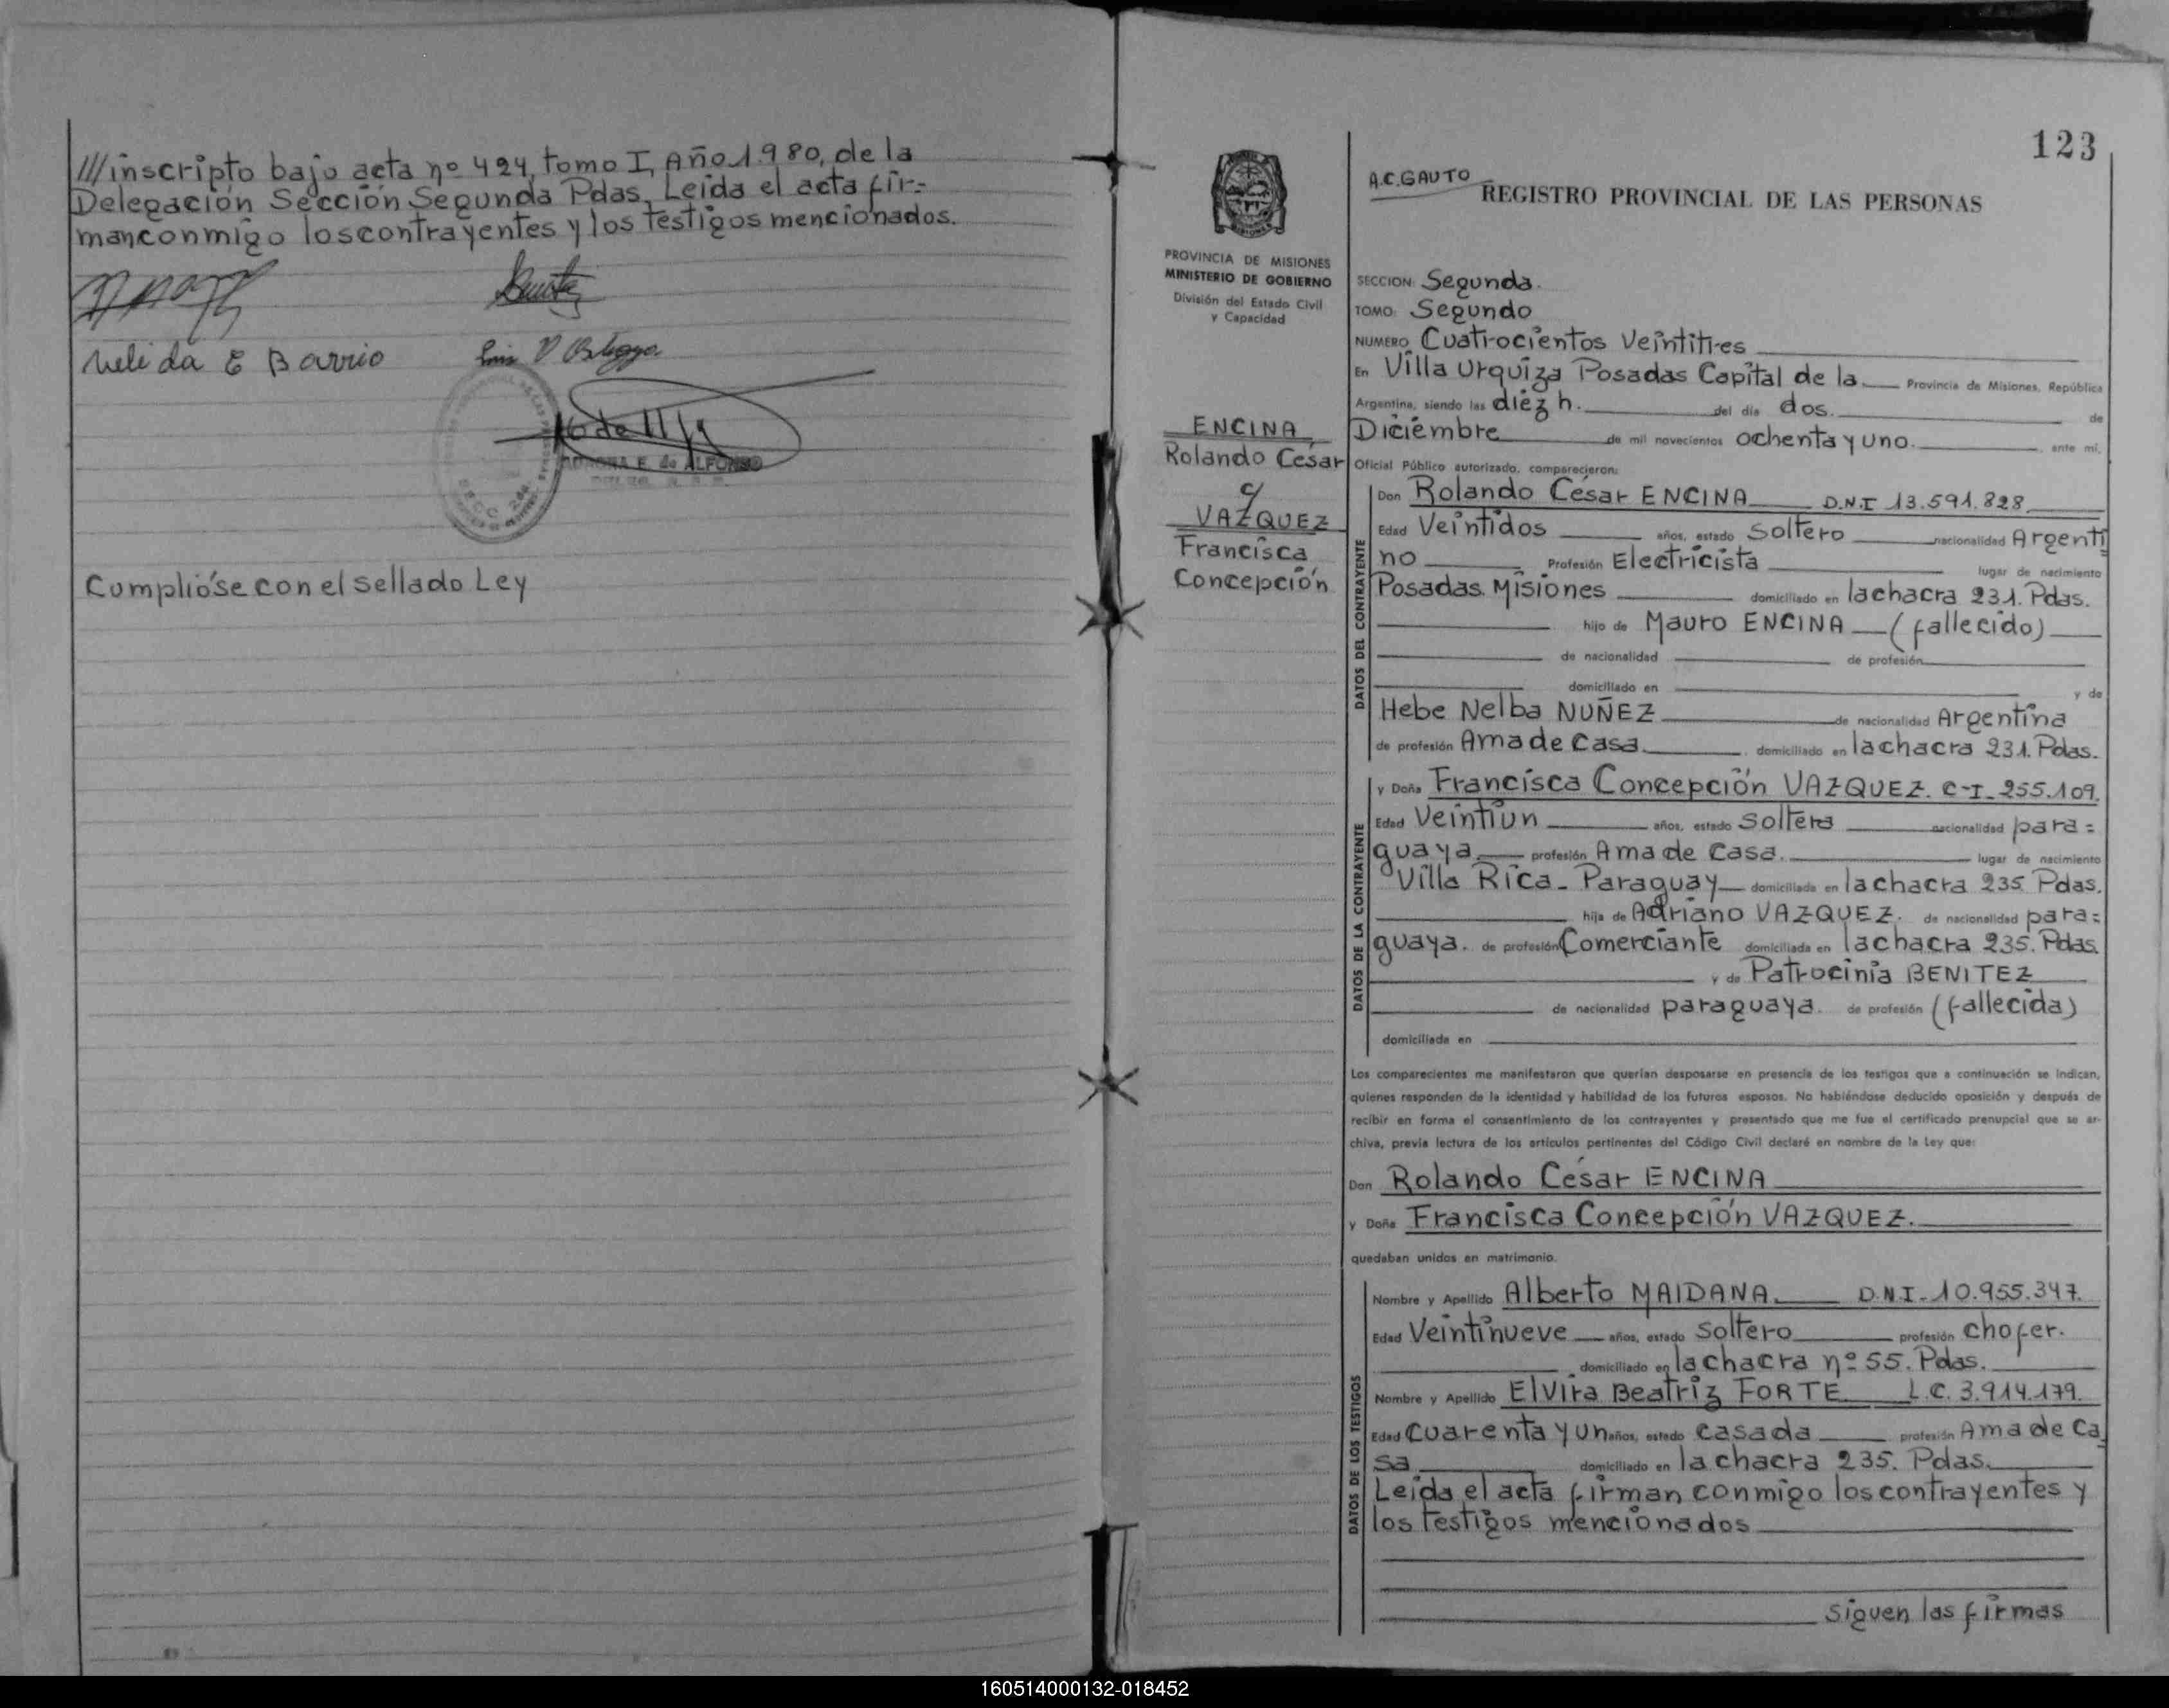 ///inscripto bajo acta nº 424, tomo I, Año 1.980, de la
Delegación Sección Segunda Pdas. Leída el acta fir=
man conmigo los contrayentes y los testigos mencionados.
Nelida E Barrio
ADRIANA E. de ALFONSO
Cumplióse con el sellado Ley
123
A.C.GAUTO
REGISTRO PROVINCIAL DE LAS PERSONAS
PROVINCIA DE MISIONES
MINISTERIO DE GOBIERNO
División del Estado Civil
y Capacidad
ENCINA
Rolando César
c/
VAZQUEZ
Francisca
Concepción
SECCION: Segunda.
TOMO: Segundo
NUMERO Cuatrocientos Veintitres
En Villa Urquiza Posadas Capital de la Provincia de Misiones, República
Argentina, siendo las diez h. del día dos. de
Diciembre de mil novecientos ochenta y uno. ante mí,
Oficial Público autorizado, comparecieron:
DATOS DEL CONTRAYENTE
Don Rolando César ENCINA D.N.I 13.591.828
Edad Veintidos años, estado Soltero nacionalidad Argenti
no Profesión Electricista lugar de nacimiento
Posadas. Misiones domiciliado en la chacra 231. Pdas.
hijo de Mauro ENCINA (fallecido)
de nacionalidad de profesión
domiciliado en y de
Hebe Nelba NUÑEZ de nacionalidad Argentina
de profesión Ama de Casa. domiciliado en la chacra 231. Pdas.
DATOS DE LA CONTRAYENTE
y Doña Francisca Concepción VAZQUEZ. C-I-255.109.
Edad Veintiún años, estado Soltera nacionalidad para=
guaya. profesión Ama de Casa. lugar de nacimiento
Villa Rica - Paraguay domiciliada en la chacra 235 Pdas.
hija de Adriano VAZQUEZ. de nacionalidad para=
guaya. de profesión Comerciante domiciliada en la chacra 235. Pdas.
y de Patrocinia BENITEZ
de nacionalidad paraguaya. de profesión (fallecida)
domiciliada en
Los comparecientes me manifestaron que querían desposarse en presencia de los testigos que a continuación se indican,
quienes responden de la identidad y habilidad de los futuros esposos. No habiéndose deducido oposición y después de
recibir en forma el consentimiento de los contrayentes y presentado que me fue el certificado prenupcial que se ar-
chiva, previa lectura de los artículos pertinentes del Código Civil declaré en nombre de la Ley que:
Don Rolando César ENCINA
y Doña Francisca Concepción VAZQUEZ.
quedaban unidos en matrimonio.
DATOS DE LOS TESTIGOS
Nombre y Apellido Alberto MAIDANA. D.N.I-10.955.347.
Edad Veintinueve años, estado Soltero profesión chofer.
domiciliado en la chacra nº 55. Pdas.
Nombre y Apellido Elvira Beatriz FORTE L.C. 3.914.179.
Edad Cuarenta y un años, estado Casada profesión Ama de Ca
sa domiciliado en la chacra 235. Pdas.
Leída el acta firman conmigo los contrayentes y
los testigos mencionados
Siguen las firmas
160514000132-018452